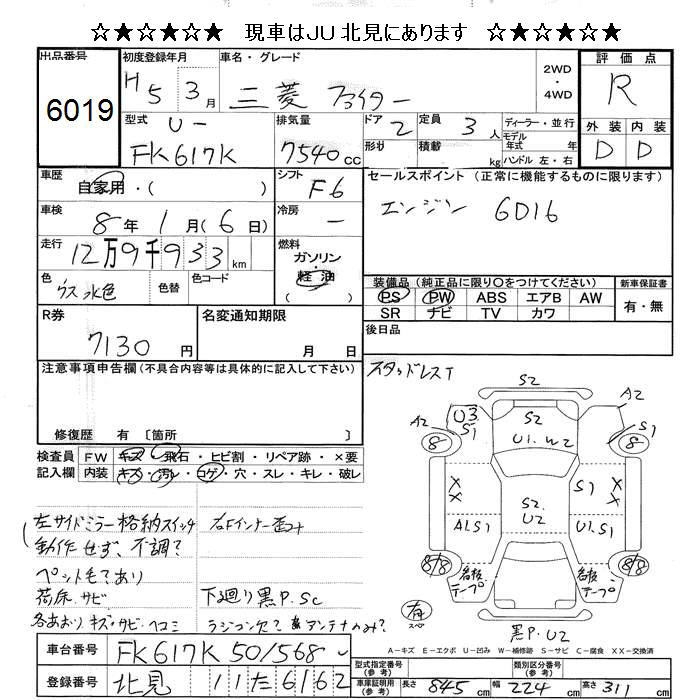 ☆★☆★☆★ 現車はJU北見にあります ☆★☆★☆★
出品番号 初度登録年月 車名・グレード 2WD・4WD 評価点
6019 H5 3月 三菱 ファイター R
型式 排気量 ドア 定員 ディーラー・並行 外装 内装
U- FK617K 7540cc 2 3人 モデル年式 年 D D
形状 積載 kg ハンドル 左・右
車歴 シフト セールスポイント (正常に機能するものに限ります)
自家用・( ) F6 エンジン 6D16
車検 冷房
8年1月(6日) ー
走行 燃料
12万9千933km ガソリン・軽油 ( )
色 色替 色コード
ウス水色
装備品 (純正品に限り○をつけてください) 新車保証書
PS PW ABS エアB AW 有・無
SR ナビ TV カワ
R券 名変通知期限 後日品
7130円 月 日
注意事項申告欄 (不具合内容等は具体的に記入して下さい) スタッドレスT
修復歴 有 〔箇所 〕
検査員記入欄 FW キズ・飛石・ヒビ割・リペア跡・×要
内装 キズ・汚レ・コゲ・穴・スレ・キレ・破レ
左サイドミラー格納スイッチ 右Fインナー歪コト
動作せず、不調?
ペット毛あり
荷床サビ 下廻り黒P.SC
各あおりキズ・サビ・ヘコミ ラジコン欠? アンテナのみ?
S2
A2 U3 S1 S2 U1.W2 A2 S1
8 8
XX S1 XX
A1.S1 S2.U2 U1.S1
8/8 8/8
名板テープ 名板テープ
有 スペ
黒P.U2
A-キズ E-エクボ U-凹み W-補修跡 S-サビ C-腐食 XX-交換済
車台番号 FK617K 501568
登録番号 北見 11た6162
型式指定番号(参考) 類別区分番号(参考)
車庫証明用(参考) 長さ 845cm 幅 224cm 高さ 311cm